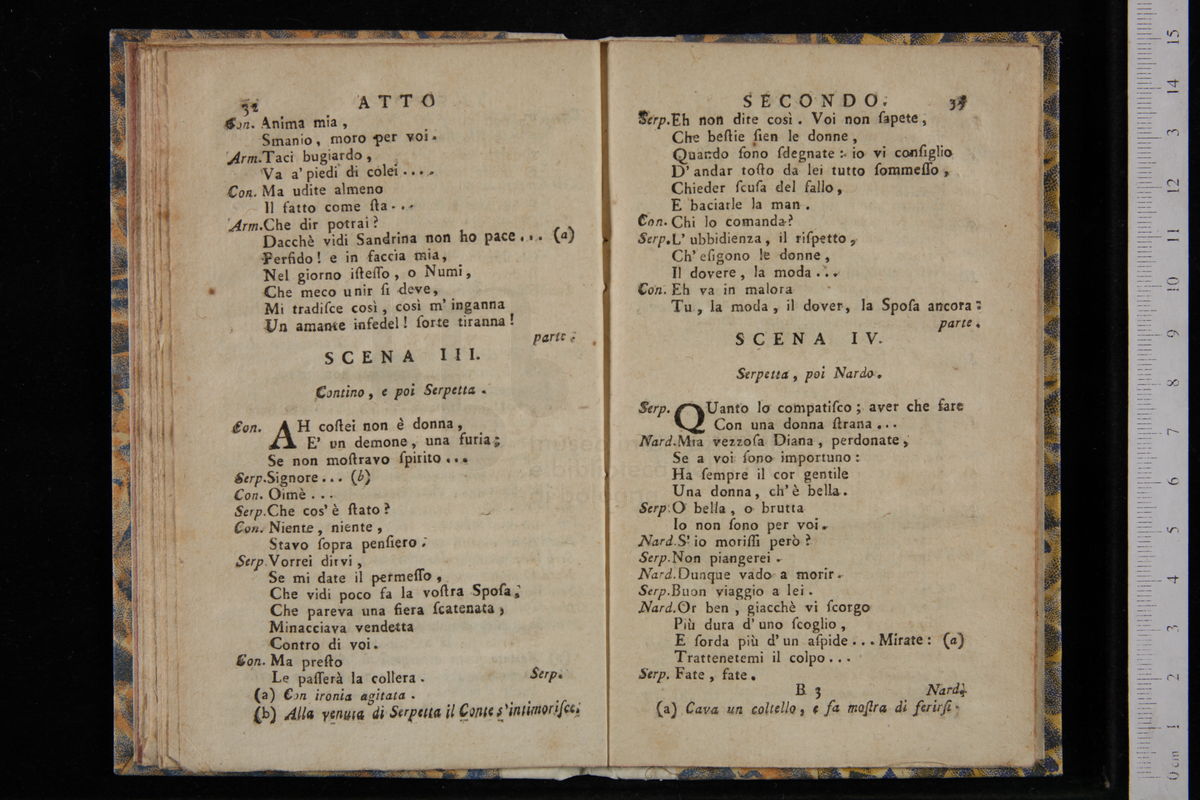 32 ATTO
Con. Anima mia,
Smanio, moro per voi.
Arm. Taci bugiardo,
Va a' piedi di colei ....
Con. Ma udite almeno
Il fatto come ſta...
Arm. Che dir potrai?
Dacchè vidi Sandrina non ho pace... (a)
Perfido! e in faccia mia,
Nel giorno iſteſſo, o Numi,
Che meco unir ſi deve,
Mi tradiſce così, così m'inganna
Un amante infedel! ſorte tiranna!
parte.
SCENA III.
Contino, e poi Serpetta.
Con. AH coſtei non è donna,
E' un demone, una furia;
Se non moſtravo ſpirito...
Serp. Signore... (b)
Con. Oimè...
Serp. Che cos'è ſtato?
Con. Niente, niente,
Stavo ſopra penſiero.
Serp. Vorrei dirvi,
Se mi date il permeſſo,
Che vidi poco fa la voſtra Spoſa,
Che pareva una fiera ſcatenata,
Minacciava vendetta
Contro di voi.
Con. Ma preſto
Le paſſerà la collera.
Serp.
(a) Con ironia agitata.
(b) Alla venuta di Serpetta il Conte s'intimoriſce.
SECONDO.
Serp. Eh non dite così. Voi non ſapete,
Che beſtie ſien le donne,
Quando ſono ſdegnate: io vi conſiglio
D'andar toſto da lei tutto ſommeſſo,
Chieder ſcuſa del fallo,
E baciarle la man.
Con. Chi lo comanda?
Serp. L'ubbidienza, il riſpetto,
Ch'eſigono le donne,
Il dovere, la moda...
Con. Eh va in malora
Tu, la moda, il dover, la Spoſa ancora:
parte.
SCENA IV.
Serpetta, poi Nardo.
Serp. QUanto lo compatiſco; aver che fare
Con una donna ſtrana...
Nard. Mia vezzoſa Diana, perdonate,
Se a voi ſono importuno:
Ha ſempre il cor gentile
Una donna, ch'è bella.
Serp. O bella, o brutta
Io non ſono per voi.
Nard. S'io moriſſi però?
Serp. Non piangerei.
Nard. Dunque vado a morir.
Serp. Buon viaggio a lei.
Nard. Or ben, giacchè vi ſcorgo
Più dura d'uno ſcoglio,
E ſorda più d'un aſpide... Mirate: (a)
Trattenetemi il colpo...
Serp. Fate, fate.
B 3 Nard.
(a) Cava un coltello, e fa moſtra di ferirſi.
0 cm 1 2 3 4 5 6 7 8 9 10 11 12 13 14 15